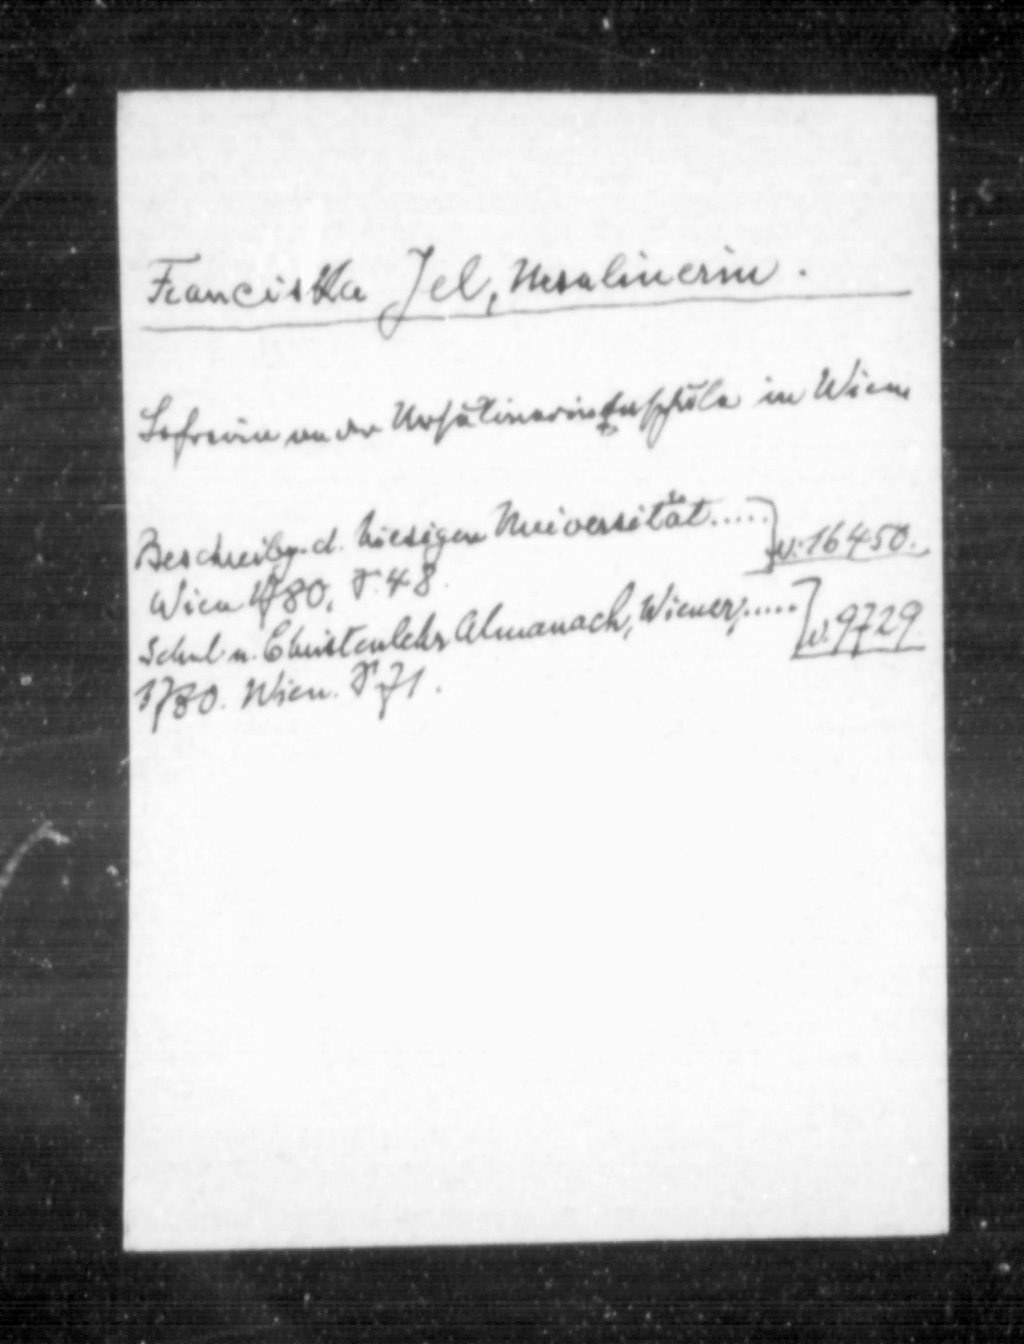 Franciska Jel, Ursulinerin.
Lehrerin an der Ursulinerinenschule in Wien
Beschreibg. d. hiesigen Universität.....
v. 16450.
Wien 1780, S. 48.
Schul- u. Christenlehr Almanach, Wiener,.....
v. 9729
1780. Wien. S. 71.